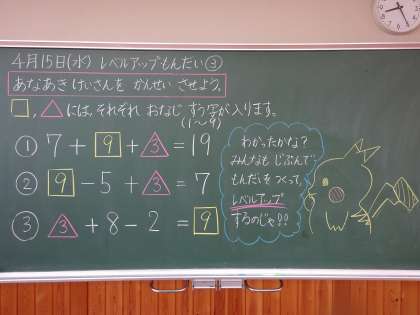 4月15日(水) レベルアップもんだい③
あなあきけいさんを かんせい させよう。
□,△には、それぞれ おなじ すう字が入ります。
(1〜9)
① 7+9+3=19
② 9-5+3=7
③ 3+8-2=9
わかったかな？
みんなも じぶんで
もんだいをつくって、
レベルアップ
するのじゃ!!